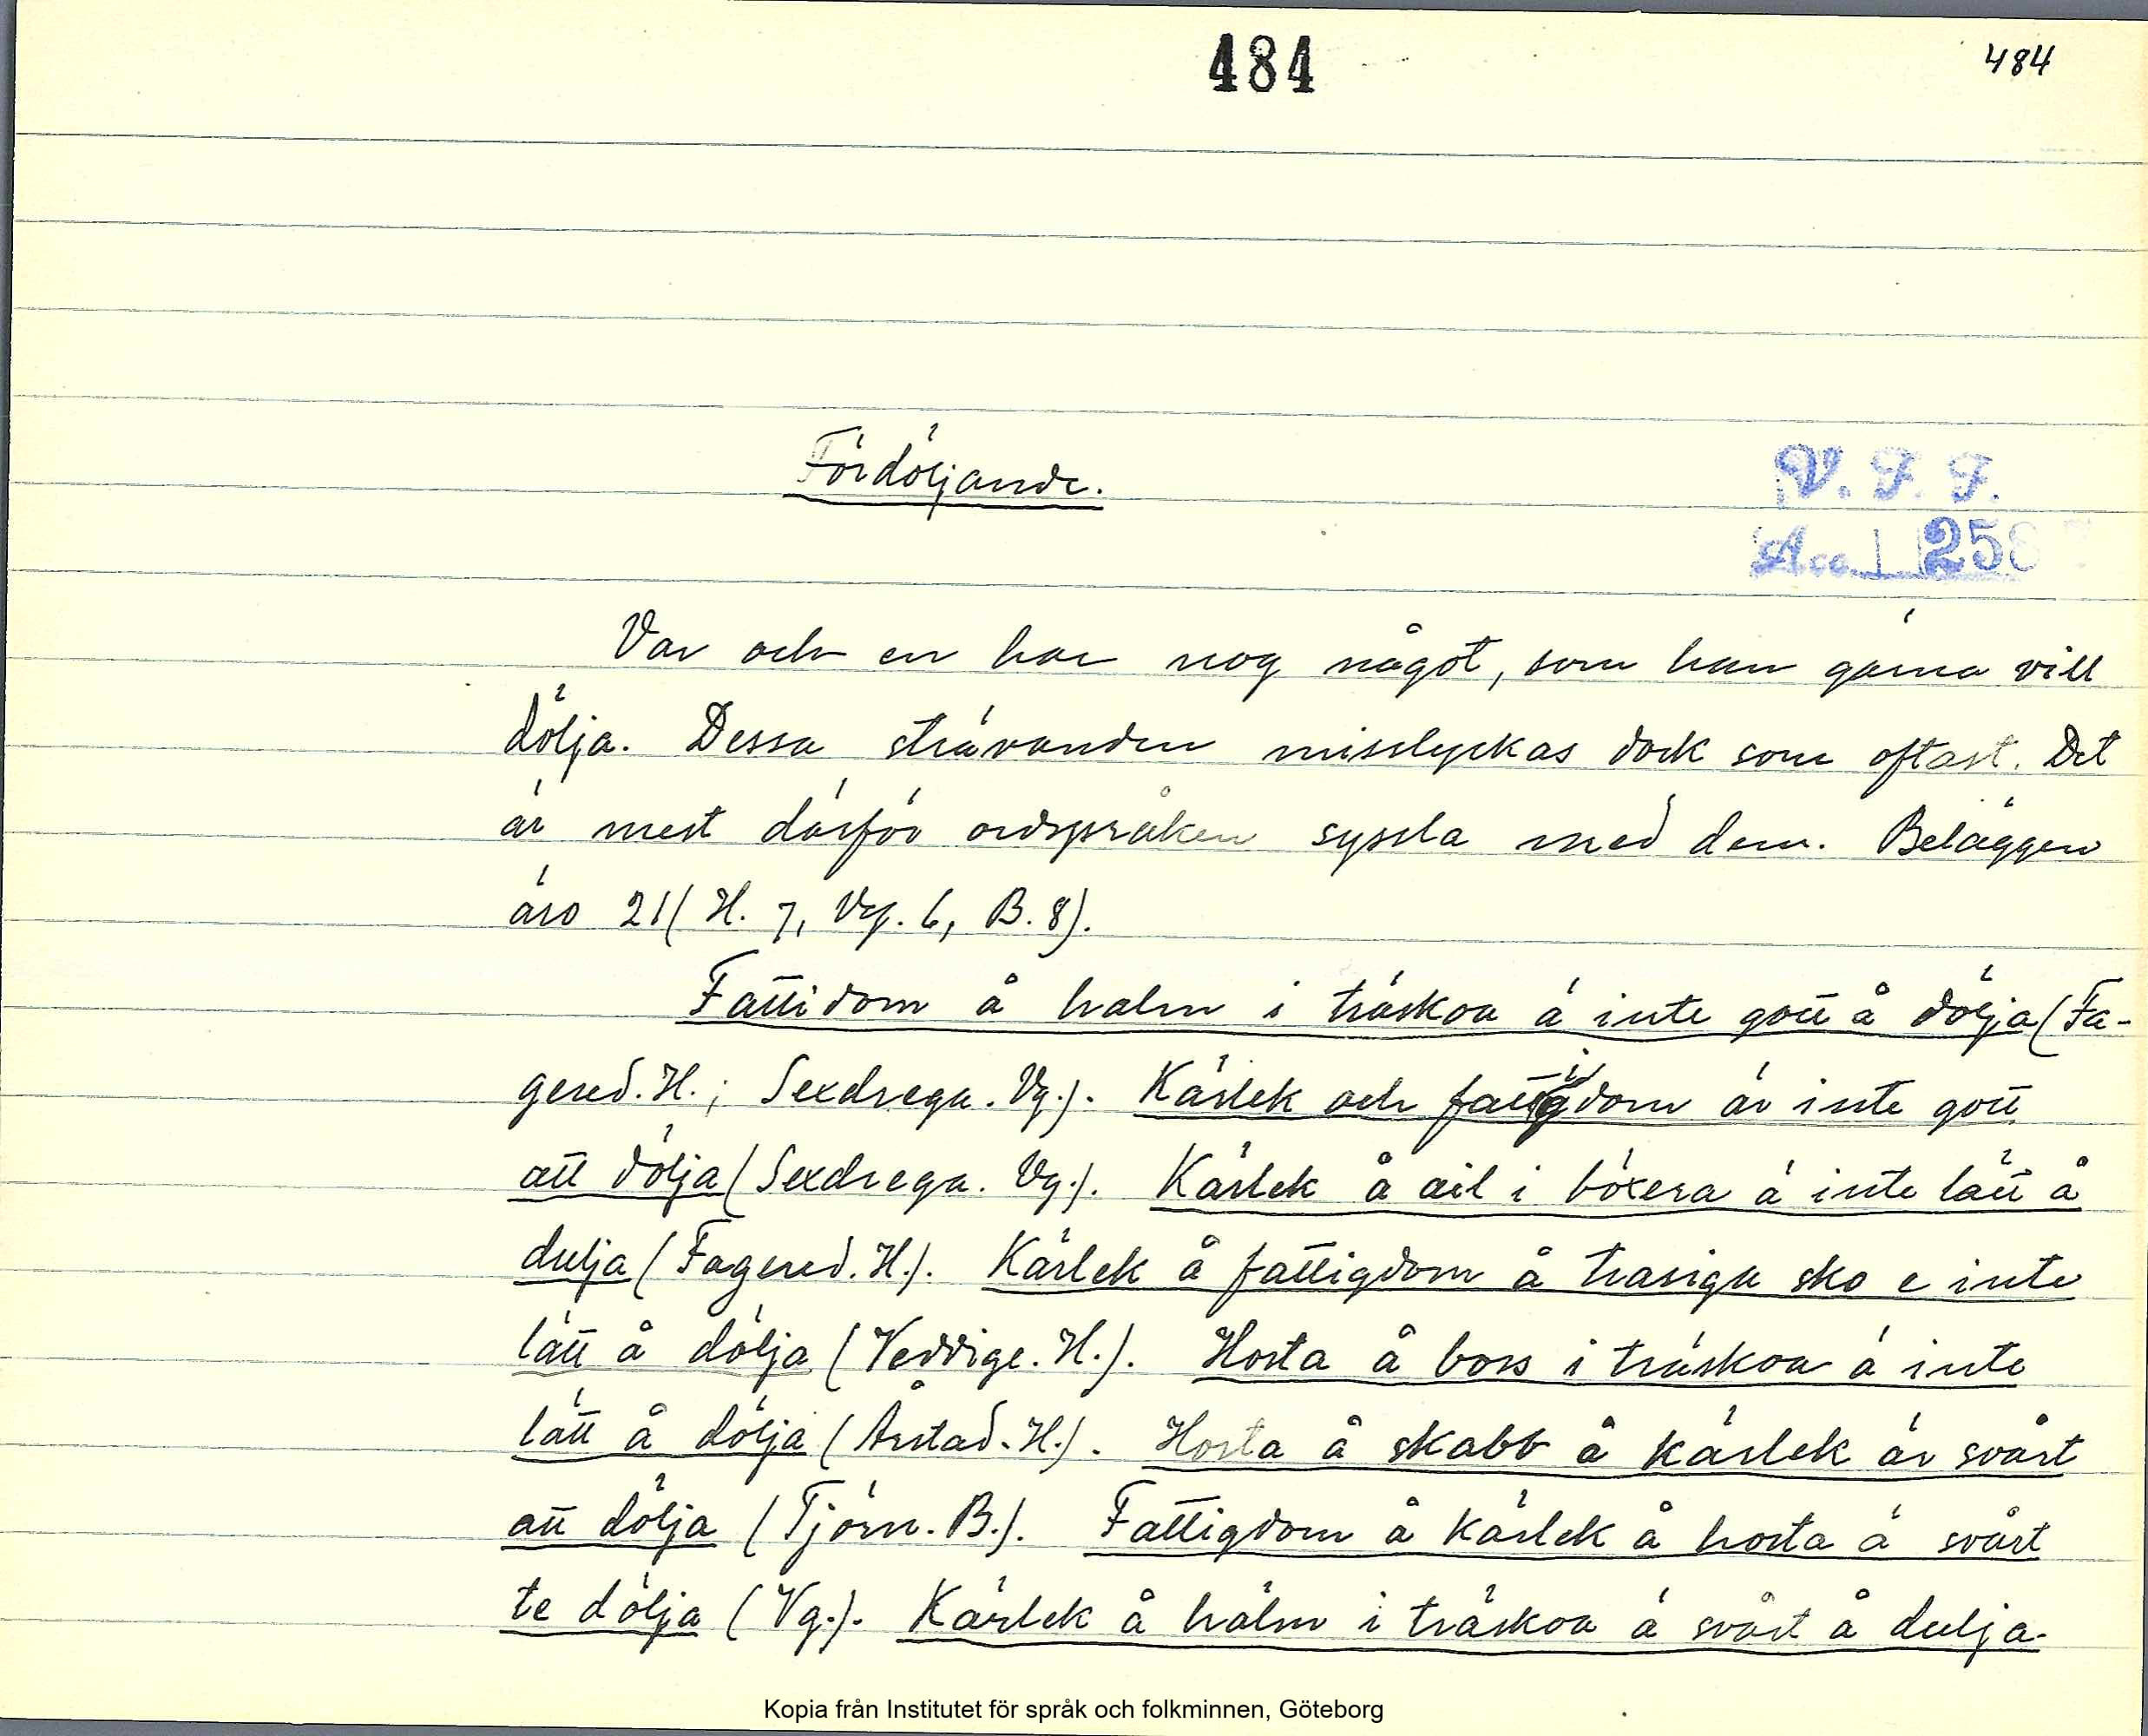 484
484
Fördöljande.
V. F. F.
Acc. 258
Var och en har nog något, som han gärna vill
dölja. Dessa strävanden misslyckas dock som oftast. Det
är mest därför ordspråken syssla med dem. Beläggen
äro 21 (H. 7, Vg. 6, B. 8).
Fattidom å halm i träskoa ä inte gott å dölja (Fa-
gered. H.; Sexdrega. Vg.). Kärlek och fattigdom är inte gott
att dölja (Sexdrega. Vg.). Kärlek å ail i böxera ä inte lätt å
dulja (Fagered. H.). Kärlek å fattigdom å trasiga sko e inte
lätt å dölja (Veddige. H.). Hosta å boss i träskoa ä inte
lätt å dölja (Årstad. H.). Hosta å skabb å kärlek är svårt
att dölja (Tjörn. B.). Fattigdom å kärlek å hosta ä svårt
te dölja (Vg.). Kärlek å halm i träskoa ä svårt å dulja.
Kopia från Institutet för språk och folkminnen, Göteborg